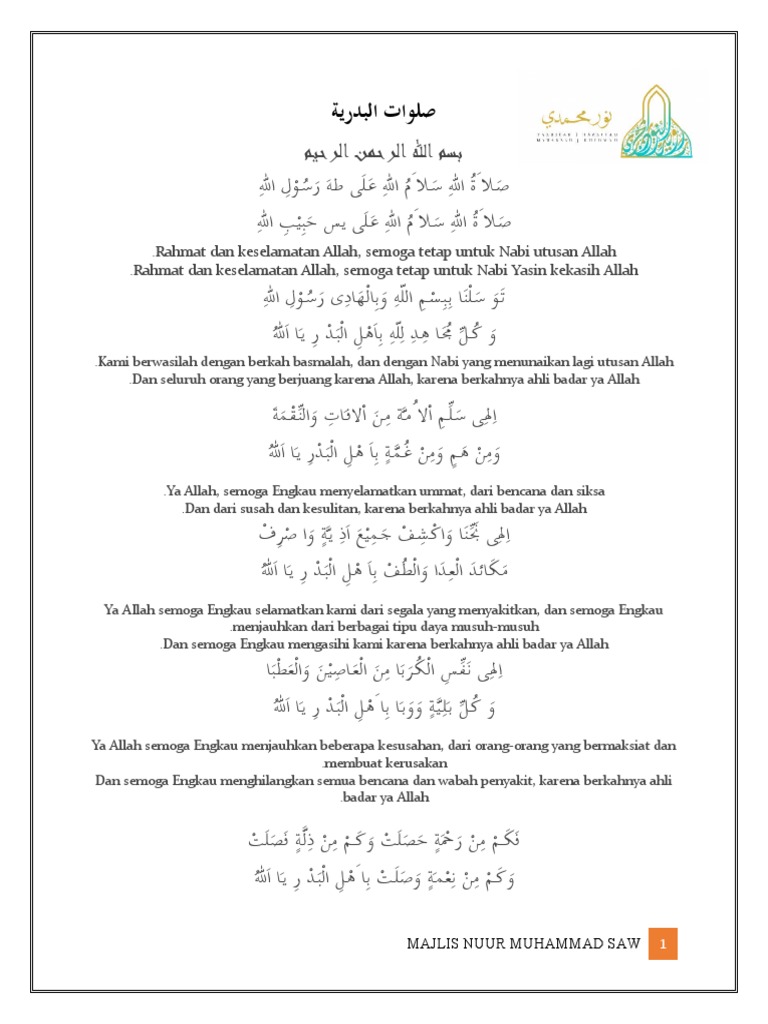 صلوات البدرية
نور محمدي
بسم الله الرحمن الرحيم
صَلاَةُ اللهِ سَلاَمُ اللهِ عَلَى طهَ رَسُوْلِ اللهِ
صَلاَةُ اللهِ سَلاَمُ اللهِ عَلَى يس حَبِيْبِ اللهِ
.Rahmat dan keselamatan Allah, semoga tetap untuk Nabi utusan Allah
.Rahmat dan keselamatan Allah, semoga tetap untuk Nabi Yasin kekasih Allah
تَوَ سَلْنَا بِبِسْمِ اللّهِ وَبِالْهَادِى رَسُوْلِ اللهِ
وَ كُلِّ مُجَا هِدِ لِلّهِ بِاَهْلِ الْبَدْ رِ يَا اَللهُ
.Kami berwasilah dengan berkah basmalah, dan dengan Nabi yang menunaikan lagi utusan Allah
.Dan seluruh orang yang berjuang karena Allah, karena berkahnya ahli badar ya Allah
اِلهِى سَلِّمِ اْلاُ مَّة مِنَ اْلافَاتِ وَالنِّقْمَةَ
وَمِنْ هَمٍ وَمِنْ غُمَّةٍ بِاَ هْلِ الْبَدْرِ يَا اَللهُ
.Ya Allah, semoga Engkau menyelamatkan ummat, dari bencana dan siksa
.Dan dari susah dan kesulitan, karena berkahnya ahli badar ya Allah
اِلهِى نَجِّنَا وَاكْشِفْ جَمِيْعَ اَذِ يَّةٍ وَا صْرِفْ
مَكَائدَ الْعِدَا وَالْطُفْ بِاَ هْلِ الْبَدْ رِ يَا اَللهُ
Ya Allah semoga Engkau selamatkan kami dari segala yang menyakitkan, dan semoga Engkau
.menjauhkan dari berbagai tipu daya musuh-musuh
.Dan semoga Engkau mengasihi kami karena berkahnya ahli badar ya Allah
اِلهِى نَفِّسِ الْكُرَبَا مِنَ الْعَاصِيْنَ وَالْعَطْبَا
وَ كُلِّ بَلِيَّةٍ وَوَبَا بِاَ هْلِ الْبَدْ رِ يَا اَللهُ
Ya Allah semoga Engkau menjauhkan beberapa kesusahan, dari orang-orang yang bermaksiat dan
.membuat kerusakan
Dan semoga Engkau menghilangkan semua bencana dan wabah penyakit, karena berkahnya ahli
.badar ya Allah
فَكَمْ مِنْ رَحْمَةٍ حَصَلَتْ وَكَمْ مِنْ ذِلَّةٍ فَصَلَتْ
وَكَمْ مِنْ نِعْمَةٍ وَصَلَتْ بِاَ هْلِ الْبَدْ رِ يَا اَللهُ
MAJLIS NUUR MUHAMMAD SAW 1